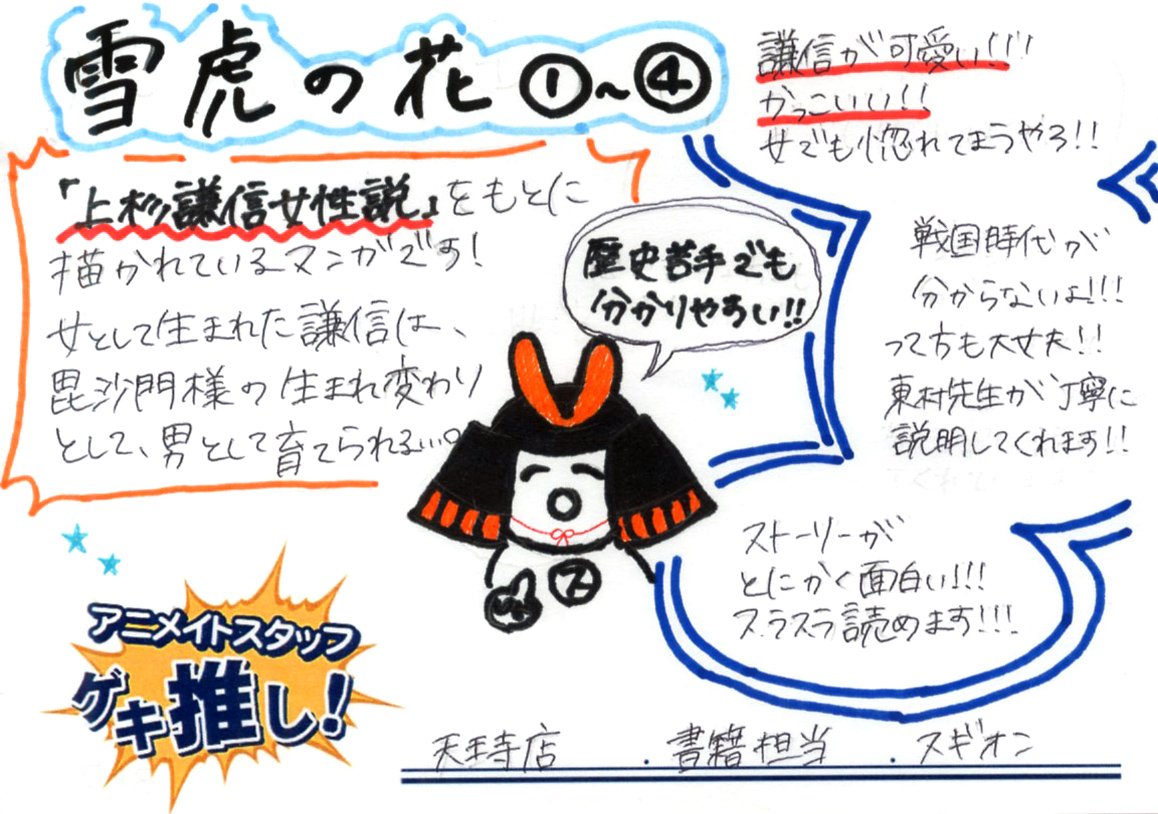 雪虎の花①~④
謙信が可愛い!!!
かっこいい!!
女でも惚れてまうやろ!!
「上杉謙信女性説」をもとに
描かれているマンガです!
女として生まれた謙信は、
毘沙門様の生まれ変わり
として、男として育てられる…。
歴史苦手でも
分かりやすい!!
戦国時代が
分からないよ!!!
って方も大丈夫!!
東村先生が丁寧に
説明してくれます!!
ス
ストーリーが
とにかく面白い!!!
スラスラ読めます!!!
アニメイトスタッフ
ゲキ推し!
天王寺店 . 書籍担当 . スギオン